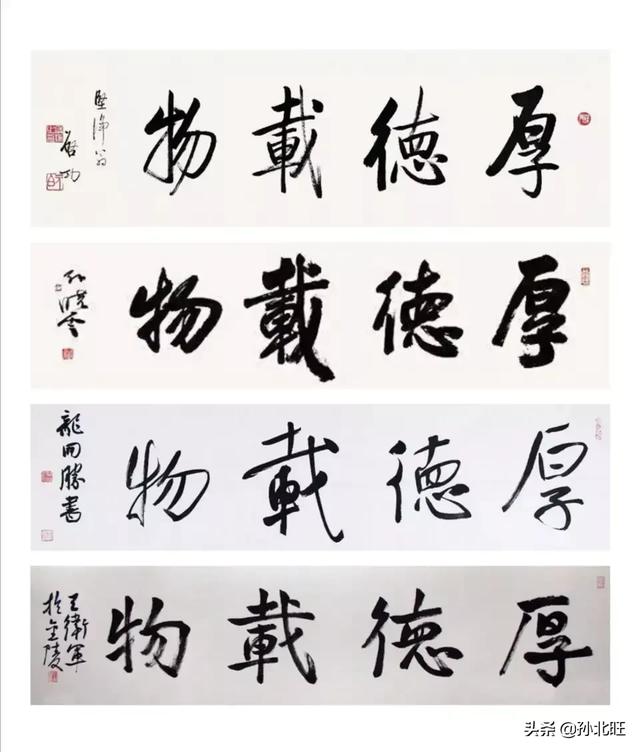 厚德載物
堅淨翁
啟功
厚德載物
孙晓云
厚德載物
龍開勝書
厚德載物
王衛軍
於金陵
头条 @孙北旺